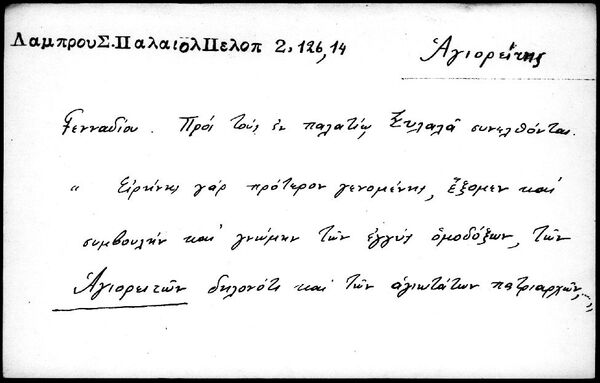 ΛαμπρουΣ.ΠαλαιολΠελοπ 2, 126, 14
Ἁγιορείτης
Γενναδίου. Πρός τούς ἐν παλατίῳ Ξυλαλᾶ συνελθόντας.
" Εἰρήνης γάρ πρότερον γενομένης, ἕξομεν καί
συμβουλήν καί γνώμην τῶν ἐγγύς ὁμοδόξων, τῶν
Ἁγιορειτῶν δηλονότι καί τῶν ἁγιωτάτων πατριαρχῶν,..."